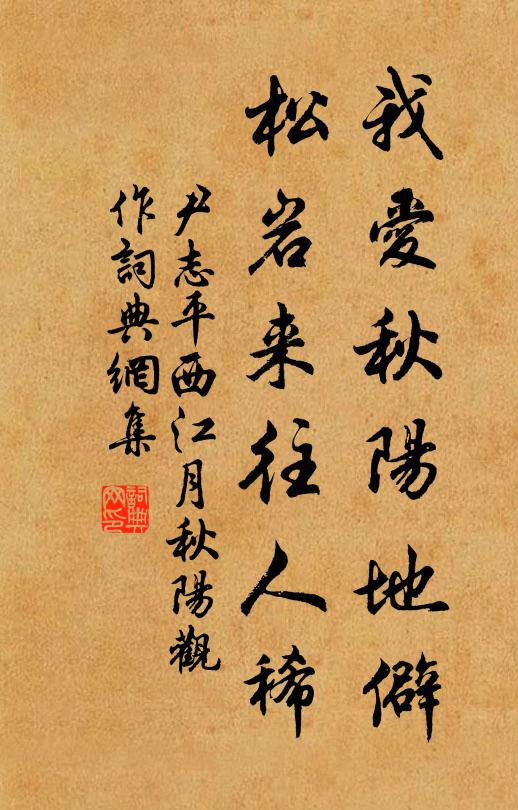 我愛秋陽地僻
松岩来往人稀
尹志平西江月秋陽觀
作詞典網集
詞典网印